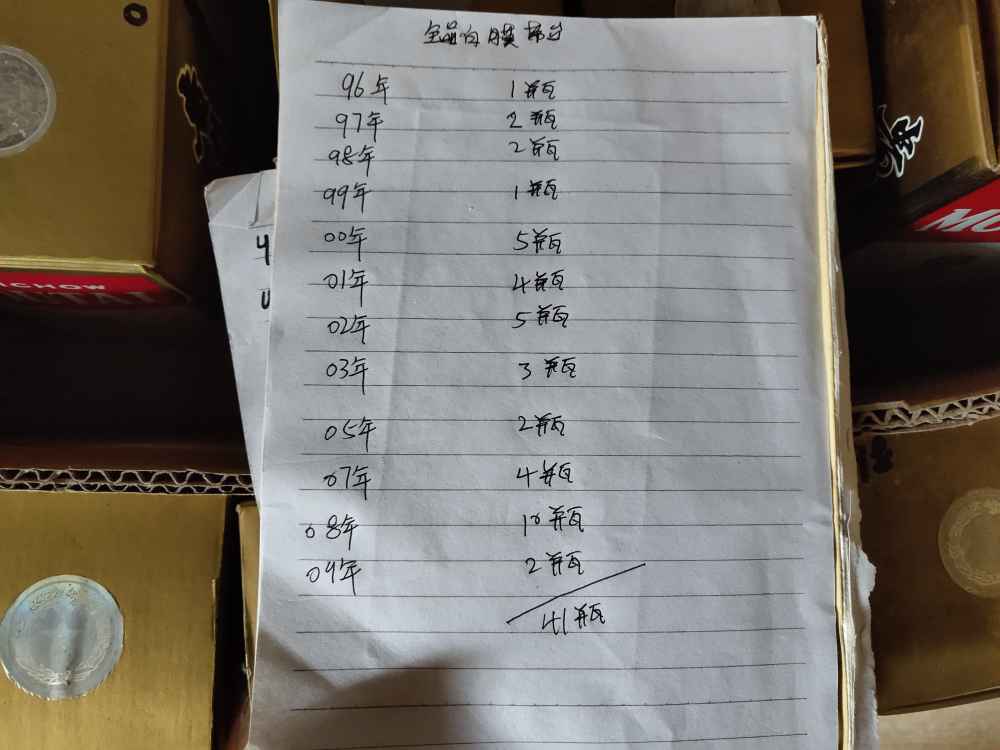 全品白膜茅台
96年 1瓶
97年 2瓶
98年 2瓶
99年 1瓶
00年 5瓶
01年 4瓶
02年 5瓶
03年 3瓶
05年 2瓶
07年 4瓶
08年 10瓶
09年 2瓶
41瓶
ICHOW
MO
4